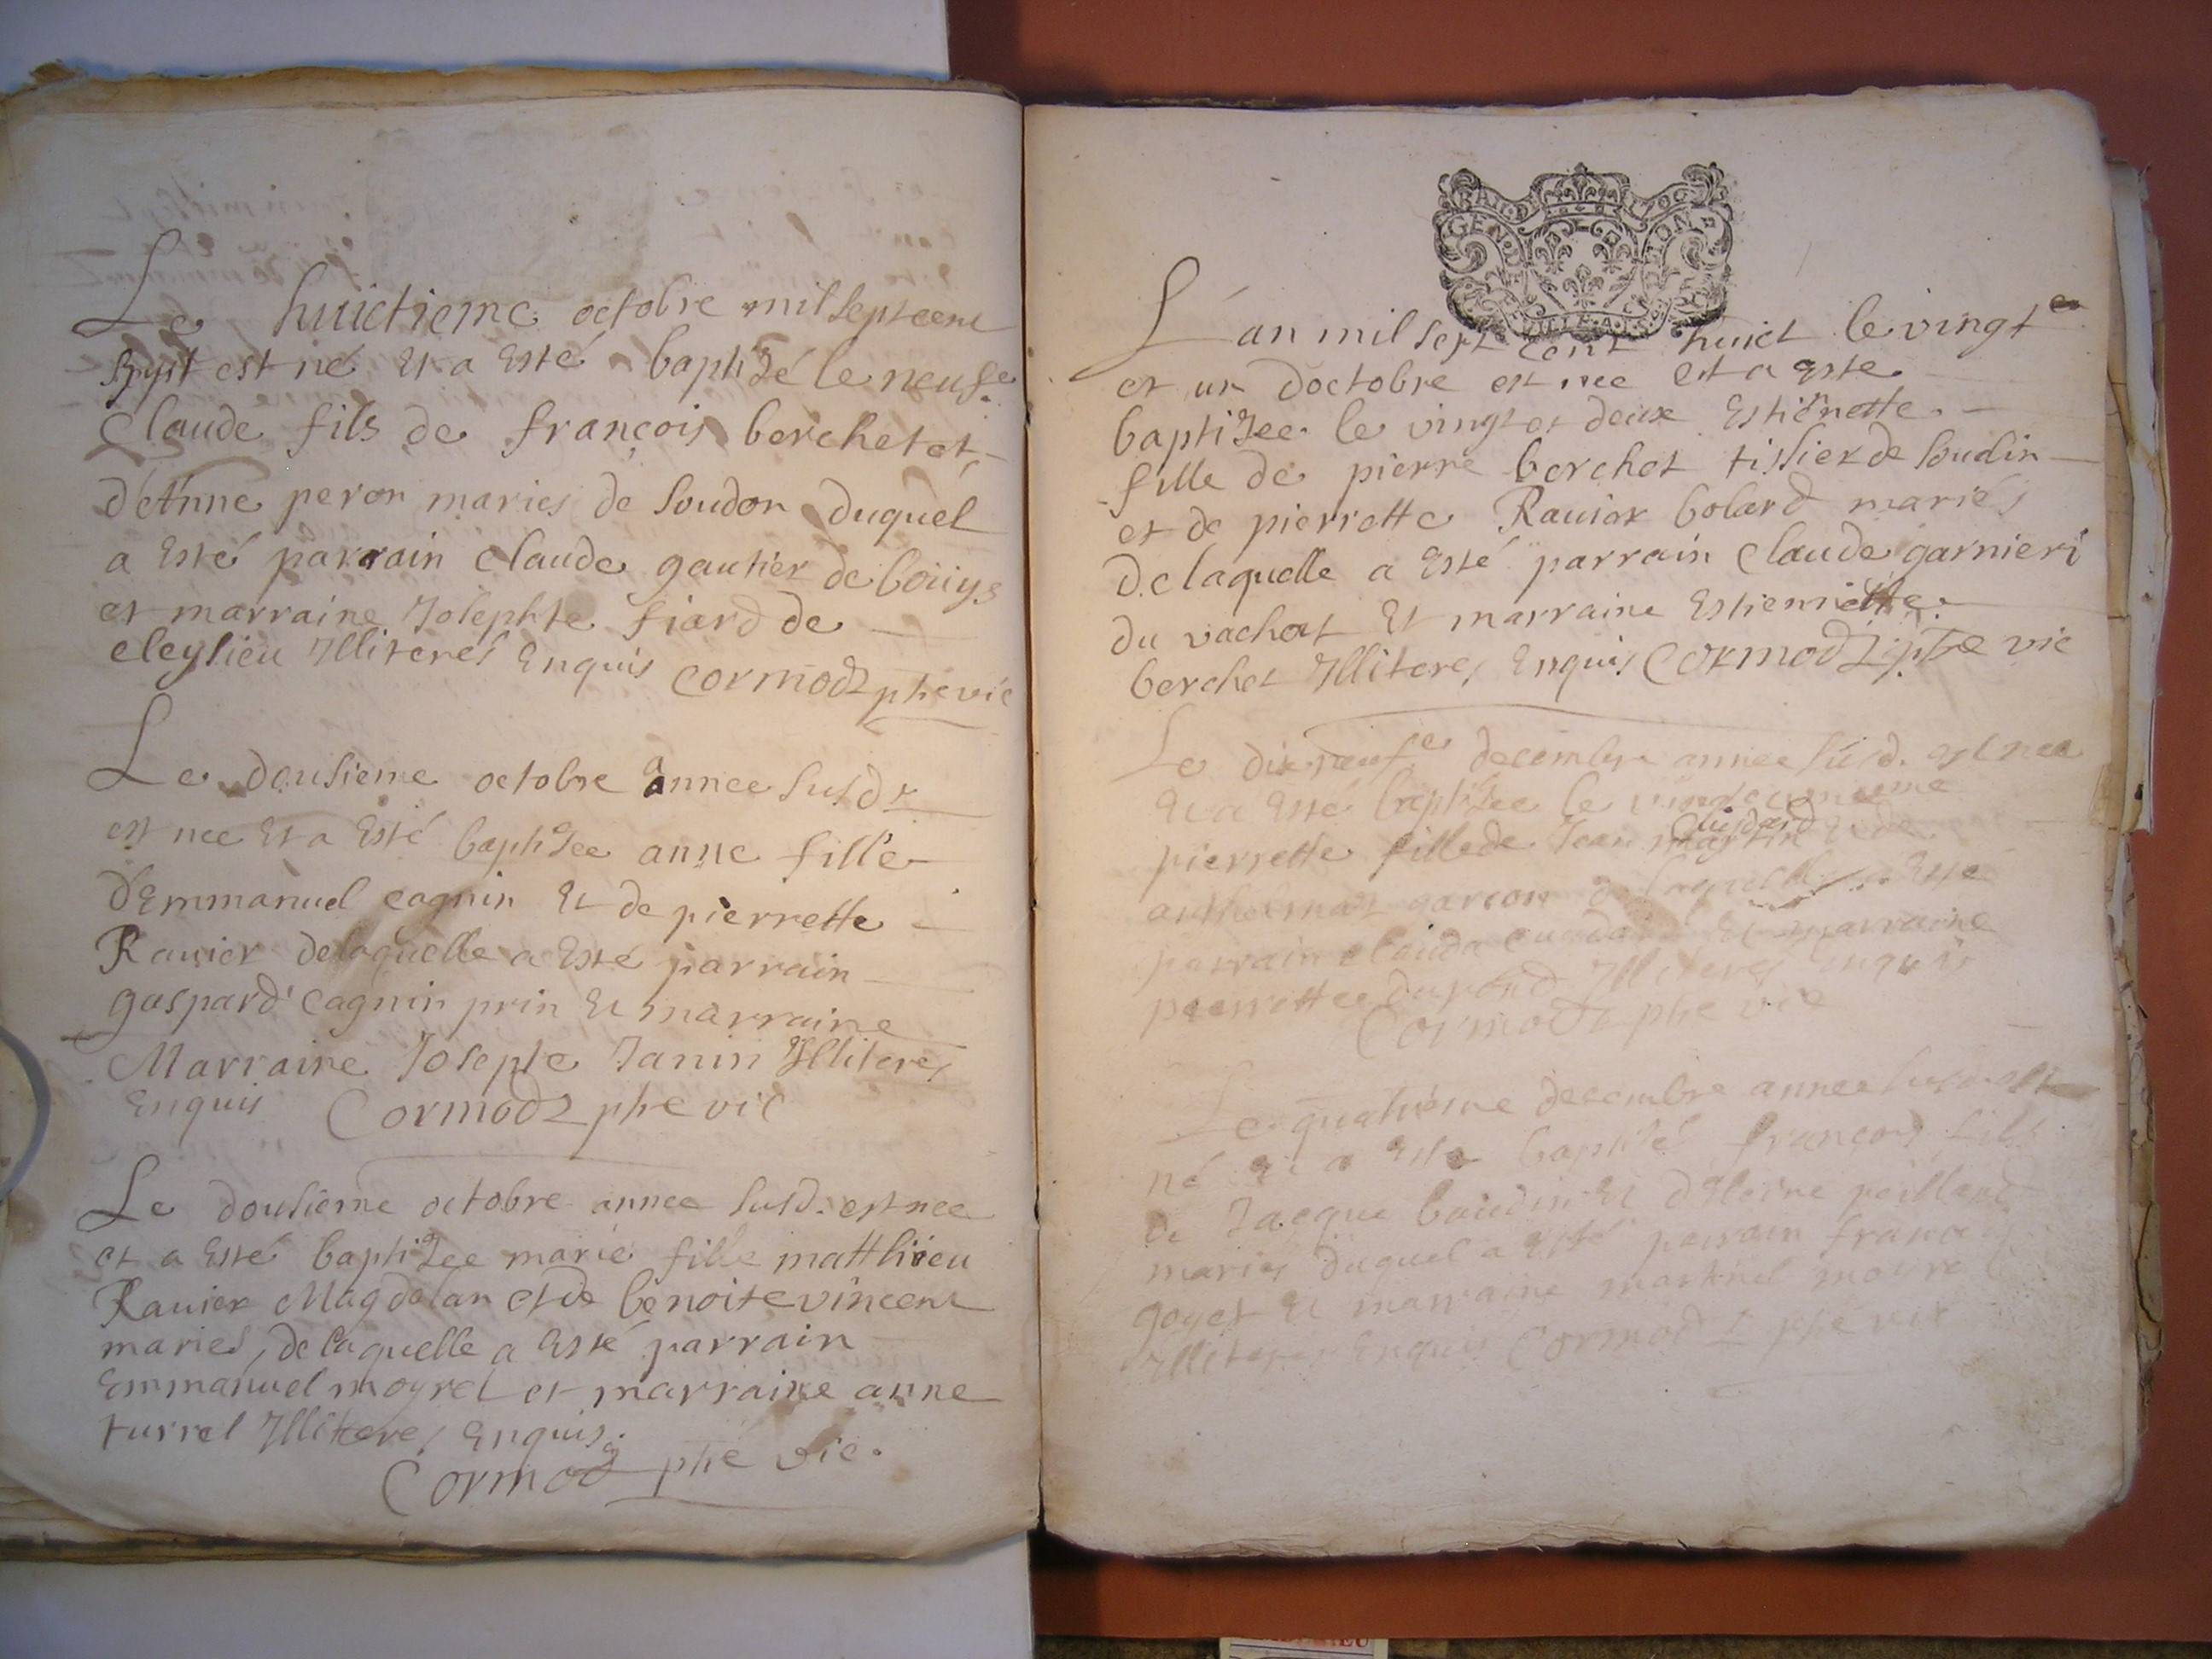 Le huictieme octobre mil sept cent
huit est né Et a Esté baptizé le neufe
Claude fils de françois berchet et
d'Anne peron maries de Soudon duquel
a Esté parrain Claude gautier de bouys
et marraine Josephte fiard de
cleyzieu Illiteres Enquis Cormodz pbre vic
Le dousieme octobre annee susd
est nee Et a Esté baptizee anne fille
d'Emmanuel cagnin Et de pierrette
Ravier delaquelle a Esté parrain
gaspard cagnin prin Et marraine
Marraine Josepte Janin Illiteres
Enquis Cormodz pbre vic
Le dousieme octobre annee susd. est nee
et a Esté baptizee marie fille matthieu
Ravier Magdelan et de benoite vincent
maries, de laquelle a Esté parrain
Emmanuel moyret et marraine anne
turrel Illiteres Enquis
Cormodz pbre vic.
GEN
L'an mil sept cent huict le vingt
et un doctobre est nee et a este
baptizee le vingt et deux Estiennette
fille de pierre berchet tissier de Soudin
et de pierrette Ravier bolard mariés
delaquelle a Esté parrain Claude garnieri
du vachat Et marraine Estiennette
berchet Illiteres Enquis Cormodz pbre vic
Le dix neufe decembre annee susd. est nee
Et a Esté baptizee le
pierrette fille de Jean Et de
garcon de laquelle a Esté
parrain claude Et marraine
pierrette durand Illiteres enquis
Cormodz pbre vic
Le quatrieme decembre annee susd. est
né Et a Esté baptizé françois fils
de Jacque baudin Et
maries duquel a Esté parrain françois
goyet Et marraine
Illiteres Enquis Cormodz pbre vic